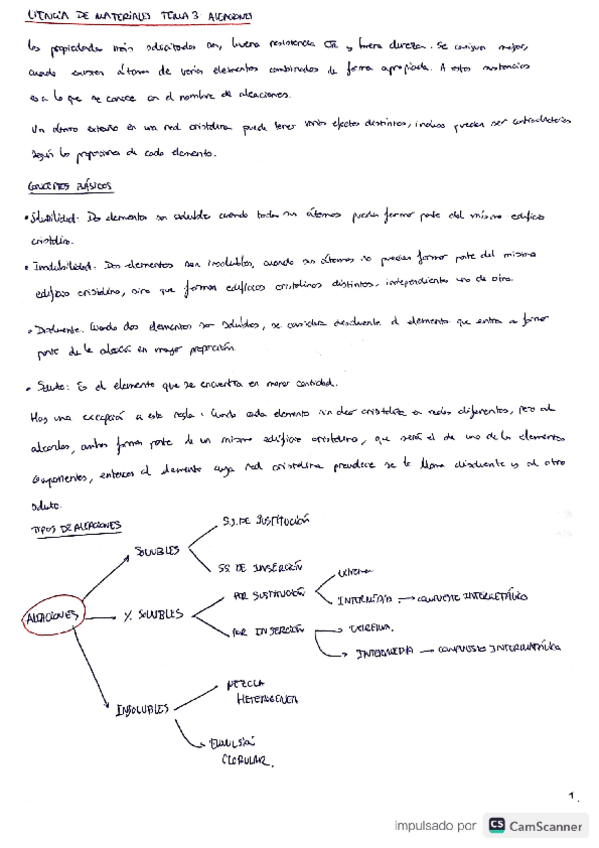 CIENCIA DE MATERIALES TEMA 3 ALEACIONES
Las propiedades más solicitadas son, buena resistencia y buena dureza. Se consigue mejor,
cuando existen átomos de varios elementos combinados de forma apropiada. A estas sustancias
es a lo que se conoce con el nombre de aleaciones.
Un átomo extraño en una red cristalina puede tener varios efectos distintos, incluso pueden ser contradictorios
según las proporciones de cada elemento.
CONCEPTOS BÁSICOS
• Solubilidad: Dos elementos son solubles cuando todos sus átomos pueden formar parte del mismo edificio
cristalino.
• Insolubilidad: Dos elementos son insolubles, cuando sus átomos no pueden formar parte del mismo
edificio cristalino, sino que forman edificios cristalinos distintos, independientes uno de otro.
• Disolvente: Cuando dos elementos son solubles, se considera disolvente el elemento que entra a formar
parte de la aleación en mayor proporción.
• Soluto: Es el elemento que se encuentra en menor cantidad.
Hay una excepción a esta regla: Cuando cada elemento cristaliza en redes diferentes, pero al
alearlos, ambos forman parte de un mismo edificio cristalino, que será el de uno de los elementos
componentes, entonces al elemento cuya red cristalina prevalece se le llama disolvente y al otro
soluto.
TIPOS DE ALEACIONES
S.S. DE SUSTITUCIÓN
SOLUBLES
SS DE INSERCIÓN
EXTREMA
POR SUSTITUCIÓN
INTERMEDIA → COMPUESTO INTERMETÁLICO
ALEACIONES
% SOLUBLES
POR INSERCIÓN
EXTREMA.
INTERMEDIA → COMPUESTO INTERMETÁLICO
MEZCLA
HETEROGENEA
INSOLUBLES
EMULSIÓN
GLOBULAR.
1.
impulsado por CS CamScanner